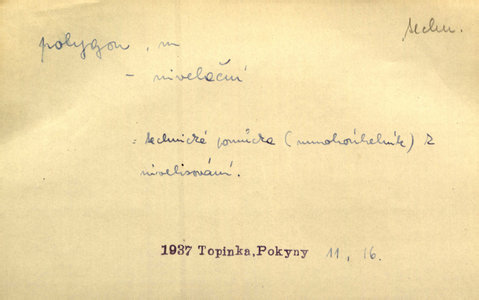 polygon, m
techn.
- nivelační
: technická pomůcka (mnohoúhelník) k
nivelisování.
1937 Topinka,Pokyny 11, 16.